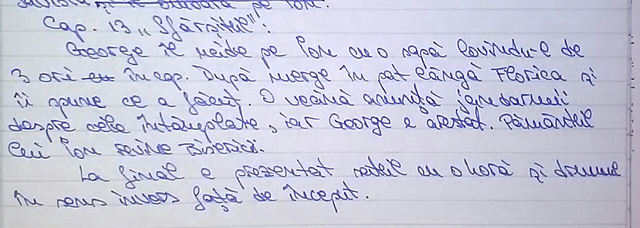 pe Ion.
Cap. 13 „Sfârșitul":
George îl ucide pe Ion cu o sapă lovindu-l de
3 ori în cap. După merge în pat lângă Florica și
îi spune ce a făcut. O vecină anunță jandarmii
despre cele întâmplate, iar George e arestat. Pământul
lui Ion revine Bisericii.
La final e prezentat satul cu o horă și drumul
în sens invers față de început.